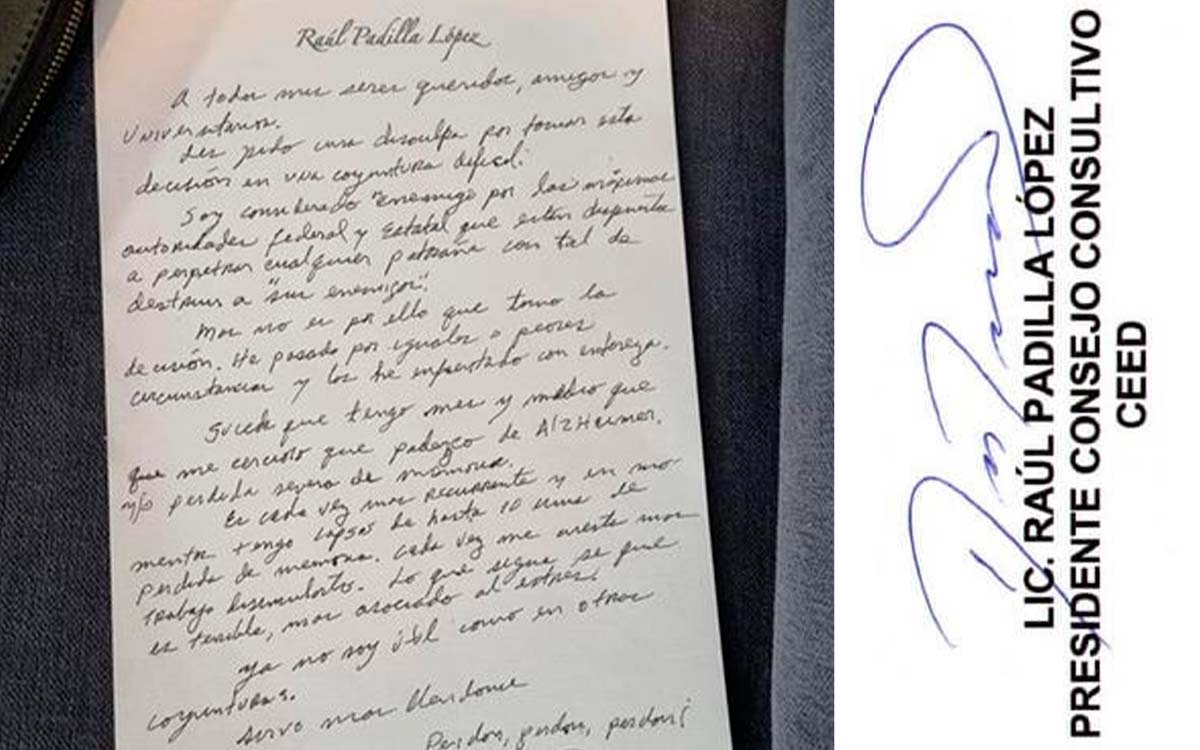 Raúl Padilla López
A todos mis seres queridos, amigos y
Universitarios.
Les pido una disculpa por tomar esta
decisión en una coyuntura difícil.
Soy considerado "enemigo por las máximas
autoridades federal y Estatal que están dispuestas
a perpetrar cualquier patraña con tal de
destruir a "sus enemigos".
Mas no es por ello que tomo la
decisión. He pasado por iguales o peores
circunstancias y las he enfrentado con entereza.
Sucede que tengo mes y medio que
que me cercioro que padezco de Alzheimer,
y/o perdida severa de memoria.
Es cada vez mas recurrente y en mo
mentos tengo lapsos de hasta 10 mins de
perdida de memoria. Cada vez me cuesta mas
trabajo disimularlo. Lo que sigue se que
es terrible, mas asociado al estrés.
Ya no soy útil como en otras
coyunturas.
Sirvo mas
Perdon, perdon, perdon!
LIC. RAÚL PADILLA LÓPEZ
PRESIDENTE CONSEJO CONSULTIVO
CEED